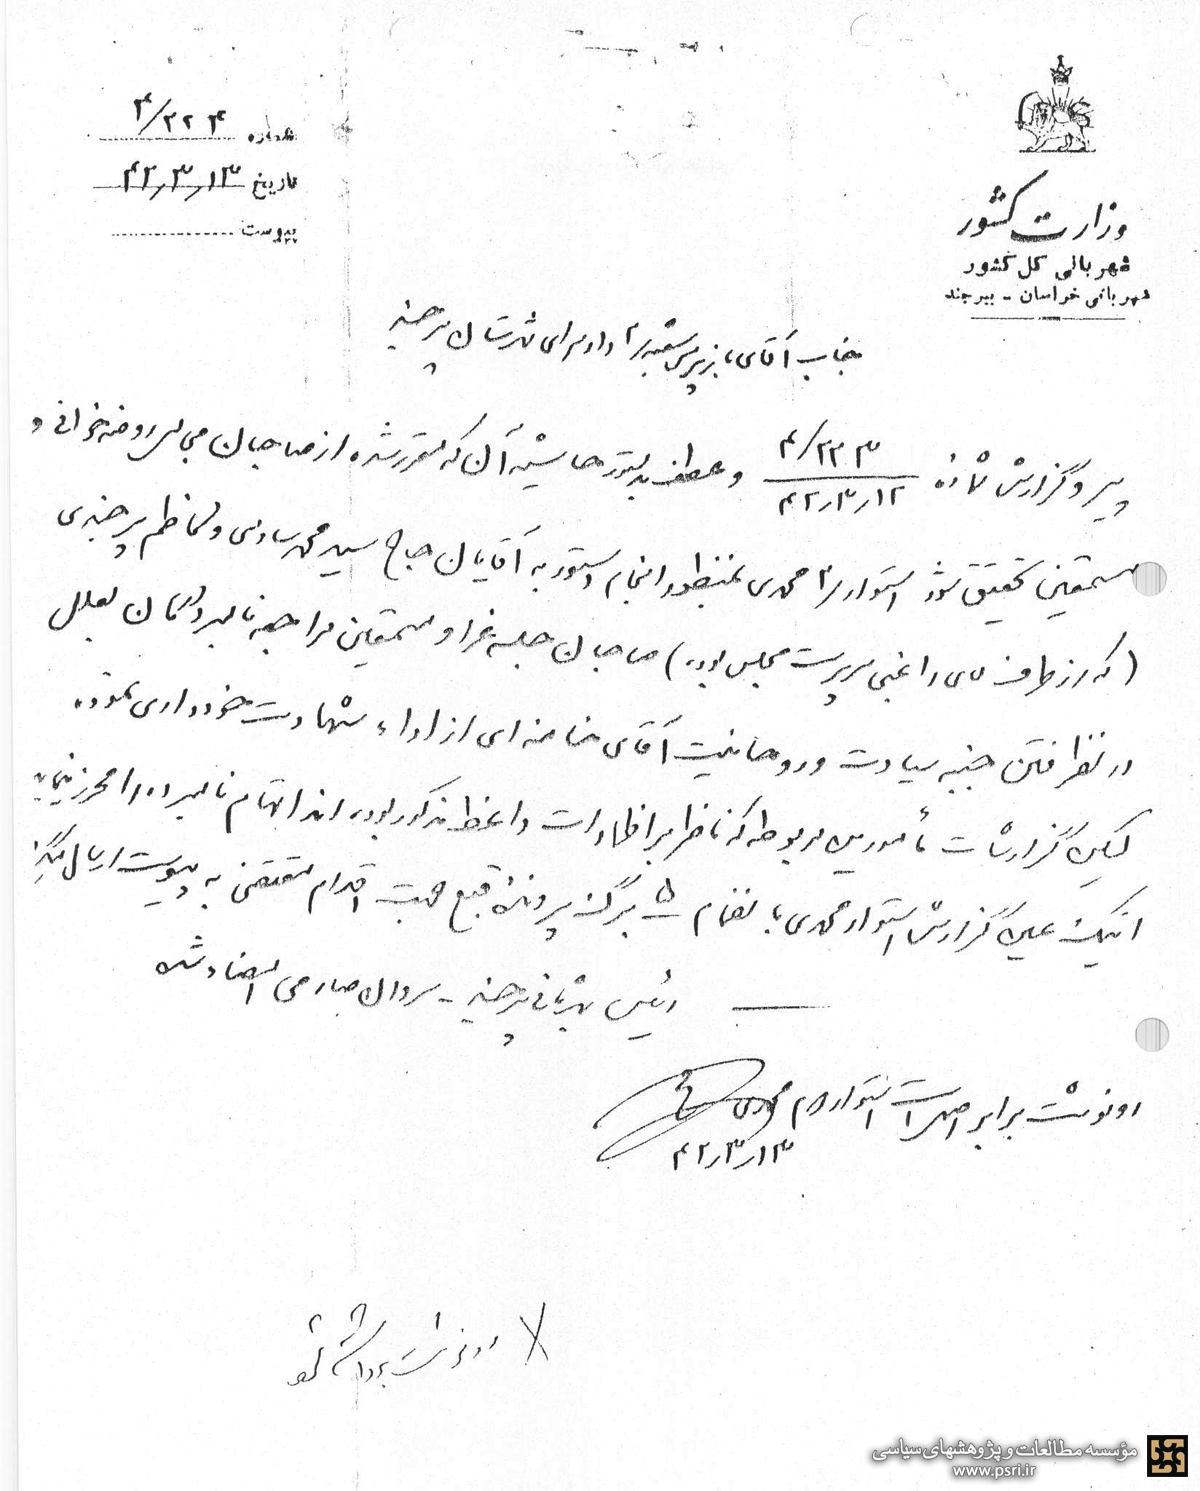 وزارت کشور
شهربانی کل کشور
شهربانی خراسان - بیرجند
شماره ۴/۲۲۴
تاریخ ۴۲٫۳٫۱۳
پیوست
جناب آقای بازپرس شعبه ۲ دادسرای شهرستان بیرجند
پیرو گزارش شماره ۴/۲۲۳ ۴۲٫۳٫۱۲ و عطف بدستور حاشیه آن که مقرر شده از صاحبان مجالس روضه‌خوانی و
مستمعین تحقیق شود استوار ۲ محمدی بمنظور انجام دستور به آقایان حاج سید محمد و کاظم بیرجندی
(که از طرف سرپرست مجلس بوده) صاحبان جلسه عزا و مستمعین مراجعه نامبردگان بعلل
در نظر گرفتن جنبه سیادت و روحانیت آقای خامنه‌ای از اداء شهادت خودداری نموده
لیکن گزارشات مأمورین مربوطه که ناظر بر اظهارات واعظ مذکور بوده‌اند اتهام نامبرده را محرز مینماید
اینک عین گزارش استوار محمدی بانضمام ۵ برگ پرونده جهت اقدام مقتضی به پیوست ارسال میگردد
رئیس شهربانی بیرجند - سروان صارمی امضاء شد
رونوشت برابر اصل است استوار دوم محمدی
۴۲٫۳٫۱۳
رونوشت برداشته شد
مؤسسه مطالعات و پژوهشهای سیاسی
www.psri.ir